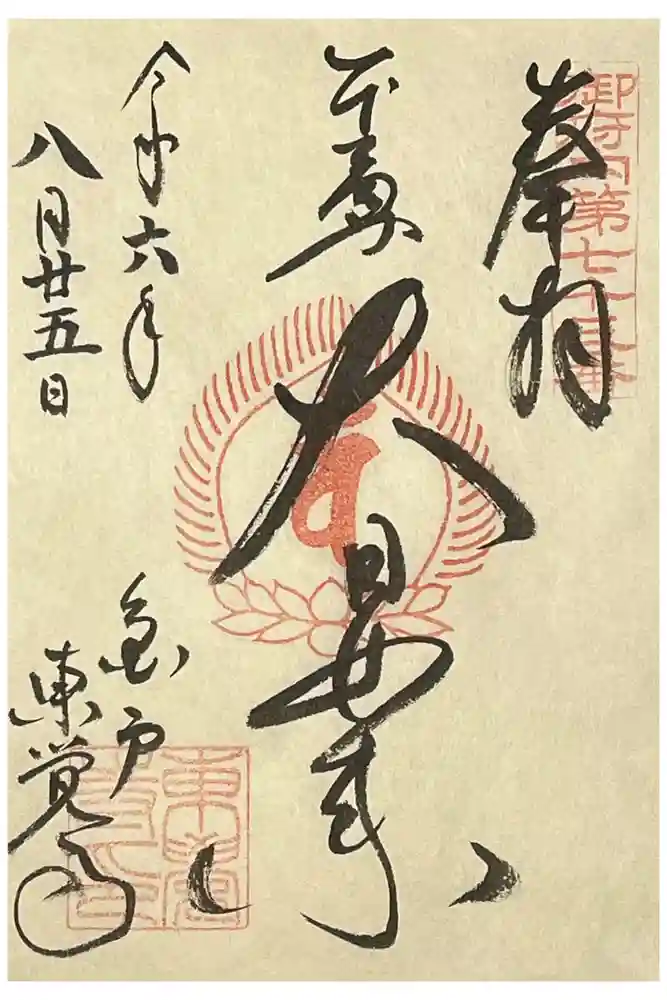 御府内第七十三番
奉拝
本尊
大日如来
令和六年
八月廿五日
亀戸
東覚寺